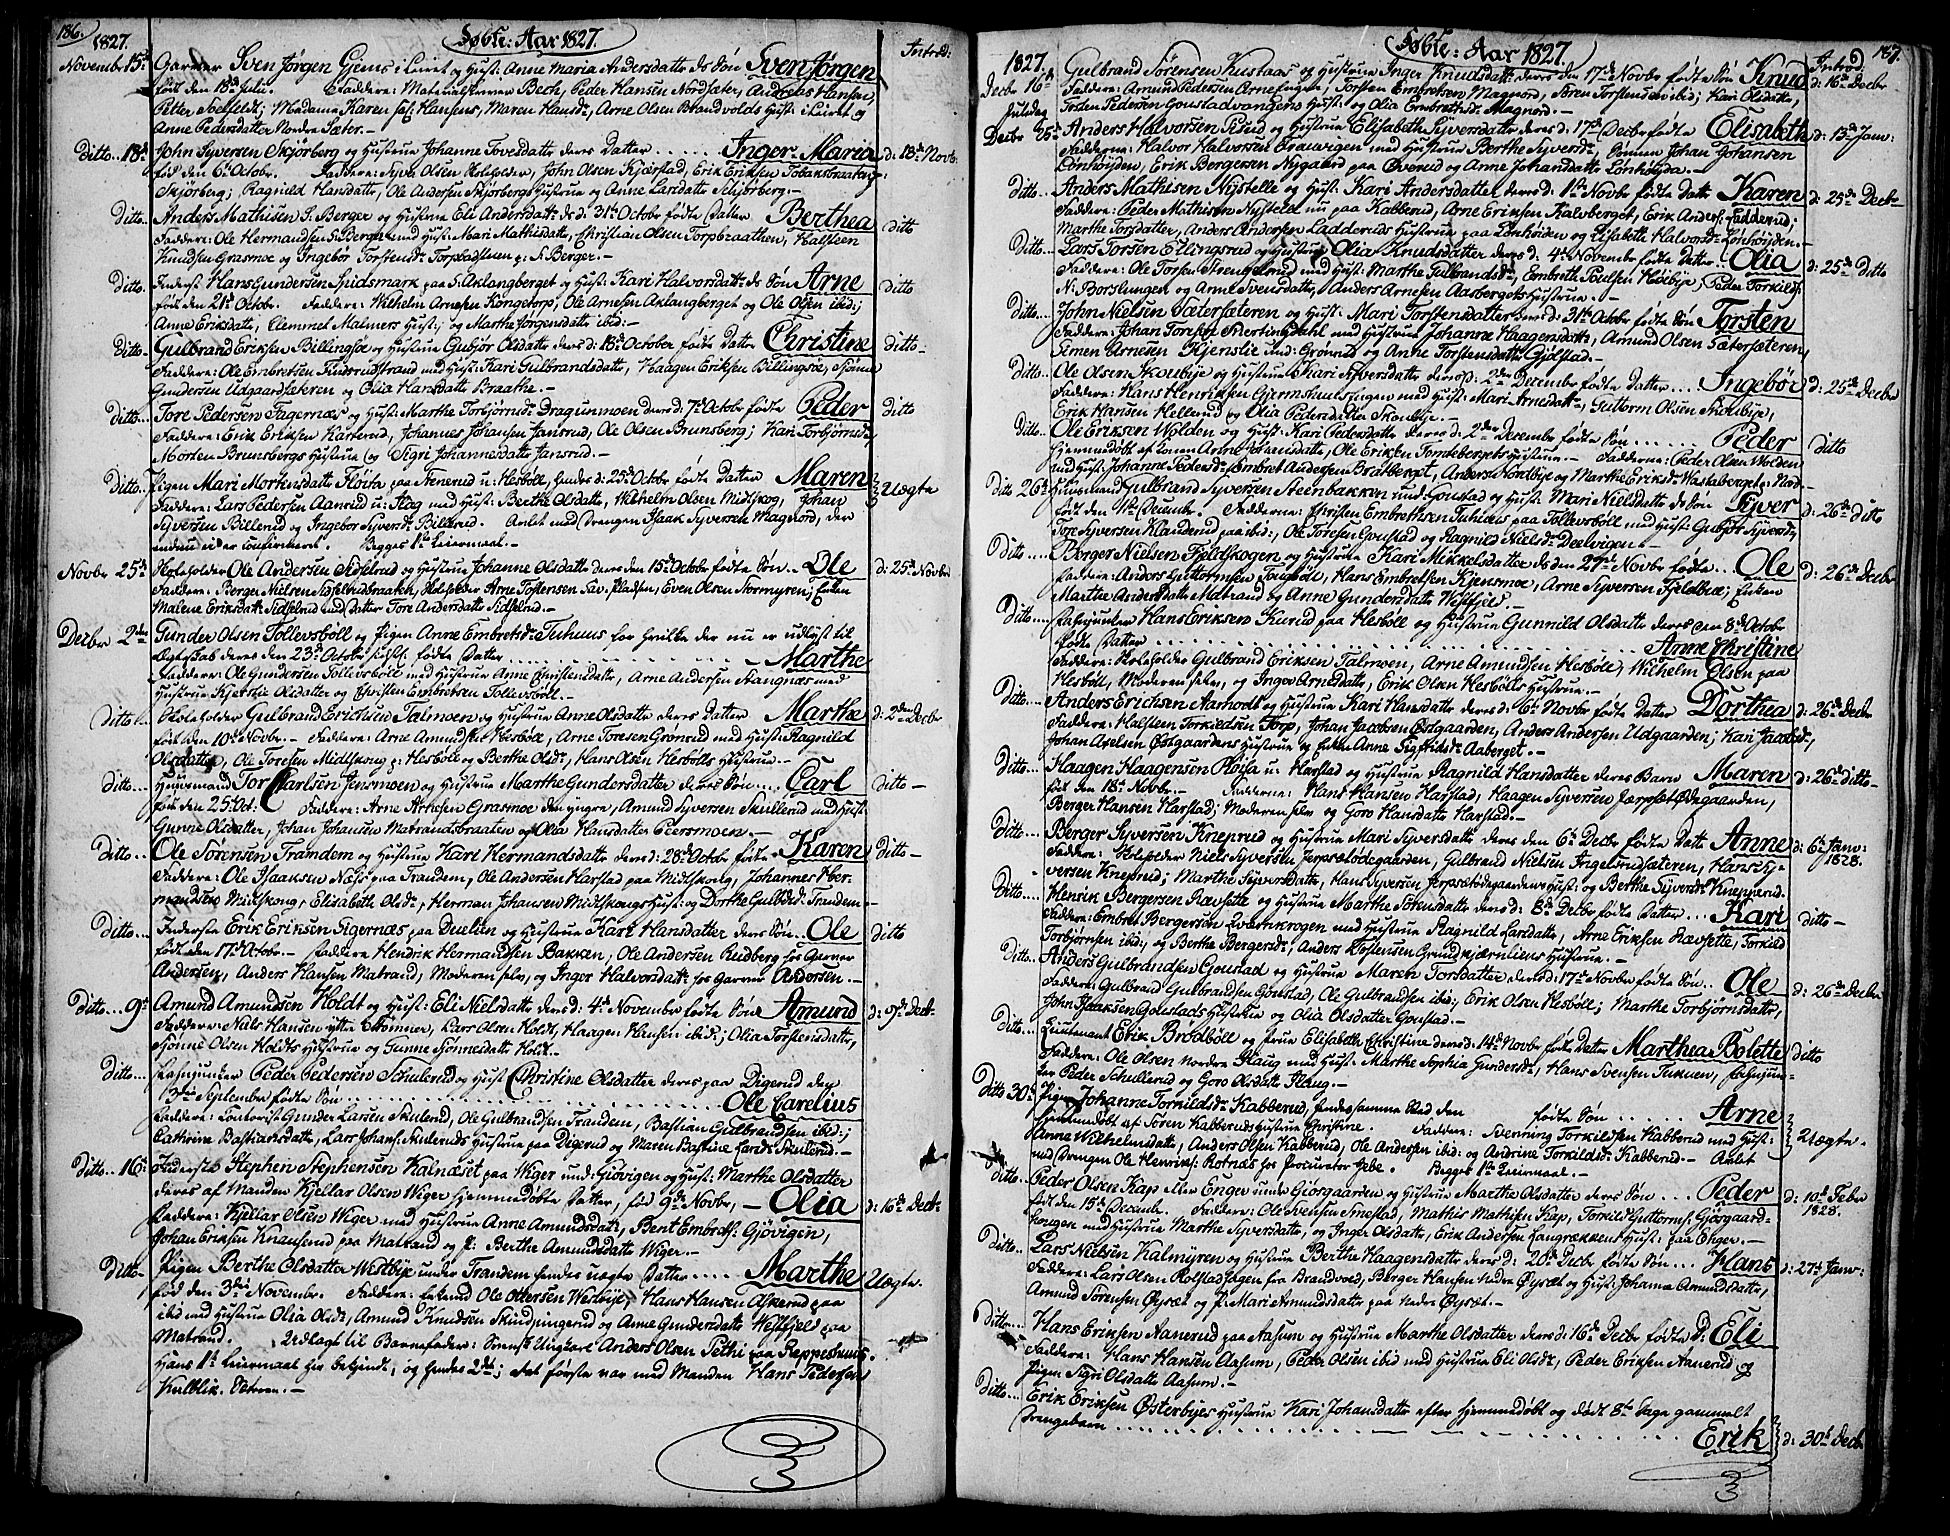 186.
Døbte: Aar 1827.
1827.
Introd:
Novembr 15d Garver Sven Jørgen Gjems i Leiret og Hust: Anne Maria Andersdatter Ds Søn Sven Jørgen
født den 18de Julii. Faddere: Bech, Peder Hansen Nordsæter, Andreas Hansen,
Petter Madame Karen sal: Hansens, Maren Arne Olsen Brandvolds Hust: i Leiret og
Anne Pedersdatter Nordre Sæter.-
Ditto. 18d John Syversen Skjørberg og Hustrue Johanne Tovesdatter deres Datter ...... Inger-Maria d: 18de Novb:
født den 6te Octobr. Faddere: Syver Olsen John Olsen Kjerstad, Erik Eriksen Tobaksbraaten
Skjørberg; Ragnild Hansdatter, Ole Andersen Skjørbergs Hustrue og Anne Larsdatter Skjørberg.-
Ditto.. Anders Mathisen S. Berger og Hustrue Eli Andersdatt: ds d: 31te Octobr fødte Datter Berthea ditto
Faddere: Ole Hermandsen S. Berger med Hust: Mari Mathisdatt:, Christian Olsen Torpbraathen, Halsteen
Knudsen Grasmoe og Ingebor Torstensd: S. Berger.-
Ditto. Inders: Hans Gundersen Spidsmark paa S. Aklangberget og Hust: Kari Halvorsdatt: ds Søn Arne ditto
født den 21de Octobr. Faddere: Wilhelm Arnesen Kongetorp, Ole Arnesen Aklangberget og Ole Olsen ibid:;
Anne Eriksdatter, Clemmet Malmers Hust:; og Marthe Jørgensdatter ibid:-
Ditto- Gulbrand Eriksen Billingsøe og Hustrue Gubjør Olsdatter deres d: 18de October fødte Datter Christine ditto-
Faddere: Ole Embretsen Findsrudstrand med Hust: Kari Gulbrandsdatter, Haagen Eriksen Billingsøe, Sjønne
Gundersen Udgaardsæteren og Olia Hansdatter Braathe.-
Ditto.. Tore Pedersen Fagernæs og Hust: Marthe Torbjørnsdr Dragunmoen deres d: 7de Octobr fødte Peder ditto
Faddere: Erik Eriksen Karterud, Johannes Johansen Jansrud, Ole Olsen Brunsberg; Kari Torbjørnsd:
Morten Brunsbergs Hustrue og Sigri Johannesdatter Jansrud.-
Ditto. Pigen Mari Mortensdatter Fløita paa Tenerud u: Hesbøll, hendes d: 25de Octobr fødte Datter Maren Uægte
Faddere: Lars Pedersen Aanrud u: med Hust: Berthe Olsdatter, Wilhelm Olsen Midtskog, Johan
Syversen Billerud og Ingebor Syversd: Billerud. Avlet med Drengen Isaak Syversen Magnord, der
endnu ei er confirmeret. Begges 1ste Leiermaal.-
Novbr 25de Ole Andersen Sidselrud og Hustrue Johanne Olsdatter deres den 15de Octobr fødte Søn .. Ole d: 25de Novbr
Faddere: Berger Nielsen Sidselrudbraaten, Arne Tostensen Sæv: Pladsen, Even Olsen Stormyren; Enken
Malene Eriksdatt: Sidselrud med Datter Tore Andersdatter Sidselrud.-
Decbr 2den Gunder Olsen Tollevsbøll og Pigen Anne Embretsd: Tuhuus for hvilke der nu er udlyst til
Ægteskab deres den 23de Octobr fødte Datter .......... Marthe
Faddere: Ole Gundersen Tollevsbøll med Hustrue Anne Christensdatter, Arne Andersen Stangnæs med
Hustrue Kjerstie Olsdatter og Christen Embretsen Tollevsbøll.-
Ditto.. Gulbrand Erichsen Talmoen og Hustrue Anne Olsdatter deres Datter Marthe d: 2den Decbr
født den 10de Novbr.- Faddere: Arne Amundsen Hesbøll, Arne Toresen Grønrud med Hust: Ragnild
Olsdatter, Ole Toresen Midtskog p: Hesbøll og Berthe Olsdr, Hans Olsen Hesbølls Hustrue.-
Ditto ... Huusmand Tor Carlsen Jensmoen og Hustrue Marthe Gundersdatter deres Søn .... Carl ditto -
født den 25de Oct. Faddere: Arne Arnesen Grasmoe den yngre, Amund Syversen Skullerud med Hust:
Gunne Olsdatter, Johan Johansen Matrandsbraaten og Olia Hansdatter Peersmoen.-
Ditto... Ole Sørensen Trandem og Hustrue Kari Hermandsdatter deres d: 28de Octobr fødte .. Karen Ditto-
Faddere: Ole Isaaksen Næss paa Trandem, Ole Andersen Harstad paa Midtskog, Johannes Hermandsen Midtskog, Elisabeth Olsd:, Herman Johansen Midtskogs Hust: og Dorthe Gulbrsd: Trandem
Ditto... Inderste Erik Eriksen Sigernæs paa Deelin og Hustrue Kari Hansdatter deres Søn.. Ole ditto
født den 17de Octobr.- Faddere Hendrik Hermandsen Bakken, Ole Andersen Reidberg hos Garver
Andersen, Anders Hansen Matrand, Moderen selv, og Inger Halvorsdatter hos Garver Andersen.-
Ditto... 9de Amund Amundsen Holdt og Hust: Eli Nielsdatter deres d: 4de November fødte Søn Amund d: 9de Decbr.
Faddere: Niels Hansen ytre Strømner, Lars Olsen Holdt, Haagen Hansen ibid:; Olia Torstensdatter,
Sjønne Olsen Holdts Hustrue og Gunne Sjønnesdatter Holdt.-
Ditto... Fahnjunker Peder Pedersen Schulerud og Hust: Christine Olsdatter deres paa Digerud den
13de September fødte Søn .......... Ole Carelius
Faddere: Contorist Gunder Larsen Skulerud, Ole Gulbrandsen Trandem, Bastian Gulbrandsen ibid:;
Cathrine Bastiansdatter, Lars Johans: Hustrue paa Digerud og Maren Bastine Larsd: Skulerud.-
Ditto.. 16de Inderste Stephen Stephensen Kalnæset paa Wiger und: Gjøvigen og Hust: Marthe Olsdatter
deres af Manden Kjellar Olsen Wiger hjemmedøbte Datter, fød 9de Novbr, - Olia d: 16de Decbr
Faddere: Kjellar Olsen Wiger med Hustrue Anne Amundsdatter, Bent Embretsen Gjøvigen,
Johan Eriksen Knapserud paa Matrand og P: Berthe Amundsdatter Wiger.-
Ditto- Pigen Berthe Olsdatter Westbye under Trandem hendes uægte Datter .... Marthe Uægte.
fød den 3de Novembr. Faddere: Ole Ottersen Westbye, Hans Hansen Askerud paa
ibid med Hustrue Olia Olsdr, Amund Knudsen Skindpungerud og Anne Gundersdatter Westfjel paa
Matrand. Udlagt til Barnefader: Anders Olsen Pethi paa Reppeshuus.
Hans 1ste Leiermaal her bekjendt, og hendes 2det; det første var med Manden Hans Pedersen
Kulblik. Sverre.-
187.
Døbte: Aar 1827.
1827.
Introd
Decbr 16de Gulbrand Sørensen Kustaas og Hustrue Inger Knudsdatt: deres den 17de Novbr fødte Søn Knud d: 16de Decbr
Faddere: Amund Pedersen Torsten Embretsen Magnord, Søren Torstensen ibid:; Kari Olsdatter,
Torsten Pedersen Goustadvangens Hust: og Olia Embretsd: Magnord.-
Juledag
Decbr 25de Anders Halvorsen og Hustrue Elisabeth Syversdatter deres d: 17de Decbr fødte Elisabeth d: 13de Janv:
Faddere: Halvor Halvorsen med Hustrue Berthe Syversd: Sønnen Johan Johansen
Lønhøiden, Erik Bergersen Nygaard paa Øverud og Anne Johansdatter Lønhøiden.-
Ditto.. Anders Mathisen Nystelle og Hust: Kari Andersdatter deres d: 1ste Novbr fødte Datt Karen d: 25de Decbr
Faddere: Peder Mathisen Nystelle nu paa Kabberud, Arne Eriksen Kalvberget, Erik Anders: Ladderud;
Marthe Torsdatter, Anders Andersen Ladderuds Hustrue paa Lønhøiden og Elisabeth Halvorsd: Lønhøiden.-
Ditto... Lars Torsen Ellingsrud og Hustrue Olia Knudsdatter deres d: 4de November fødte Datter. Olia d: 25de Ditto
Faddere: Ole Torsen med Hust: Marthe Gulbrandsd:, Embreth Poulsen Høibye, Peder Torkilds:
N: Borslungen og Arne Svensdatter, Anders Arnesen Aasbergets Hustrue.-
Ditto... John Nielsen Sæterfæteren og Hustrue: Mari Torstensdatter deres d: 31te Octobr fødte Søn Torsten
Faddere: Johan Toresen med Hustrue Johanne Haagensdatter, Amund Olsen Sæterfæteren,
Simen Arnesen Kjenslie und: Grønrud og Anne Torstensdatter Gjølstad.-
Ditto.. Ole Olsen Skoubye og Hustrue Kari Syversdatter deres d: 2den Decembr fødte Datter... Ingebør d: 25de Decbr
Faddere: Hans Henriksen med Hust: Mari Arnesdatt:, Guttorm Olsen Skoubye,
Erik Hansen Hellerud og Olia Pedersdatter Skoubye.-
Ditto.. Ole Eriksen Wolden og Hust: Kari Pedersdatter deres d: 2den Decembr fødte Søn ...... Peder ditto
Hjemmedøbt af Konen Anne Johansdatter, Ole Eriksen Tombergets Hustrue.- Faddere: Peder Olsen Wolden
med Hust: Johanne Pedersd: Embret Andersen Bratberget, Anders Nordbye og Marthe Eriksd: Wastaberget p: Nord-
Ditto 26de Huusmand Gulbrand Syversen Steenbakken und: Goustad og Hust: Mari Nielsdatter ds Søn Syver d: 26de ditto
født den 11te Decembr. Faddere: Christen Embrethsen Tuhuus paa Tollevsbøll med Hust: Gubjør Syversd:,
Tore Syversen Klanderud paa ibid:, Ole Toresen Goustad og Ragnild Nielsd: Deelvigen.-
Ditto..... Borger Nielsen Fjeldskogen og Hustrue Kari Mikkelsdatter ds den 27de Novbr fødte.. Ole d: 26de Decbr
Faddere: Anders Guttormsen Tougbøl, Hans Embretsen Kjensmoe, Arne Syversen Fjeldbye; Enken
Marthe Andersdatter Matrand og Anne Gundersdatter Westfjel.-
Ditto.... Fahnjunker Hans Eriksen Kurud paa Hesbøll og Hustrue Gunnild Olsdatter deres den 8de October
fødte Datter .......... Anne Christine
Faddere: Gulbrand Eriksen Talmoen, Arne Amundsen Hesbøll, Wilhelm Olsen paa
Hesbøll, Moderen selv, og Inger Arnesdatter, Erik Olsen Hesbølls Hustrue.-
Ditto... Anders Erichsen Aamodt og Hustrue Kari Hansdatter deres d: 6te Novbr fødte Datter Dorthea d: 26de Decbr
Faddere: Halsteen Torkildsen Torp, Johan Jacobsen Østgaarden, Anders Andersen Udgaarden; Kari Jacobsd:,
Johan Axelsen Østgaardens Hustrue og Enken Anne Sigfridsd: Aaberget.-
Ditto.... Haagen Haagensen Fløita u: Harstad og Hustrue Ragnild Hansdatter deres Barn Maren d: 26de ditto-
fød den 18de Novbr. Faddere: Hans Hansen Harstad, Haagen Syversen Jærpsæt Ødegaarden,
Berger Hansen Harstad; Moderen selv og Goro Hansdatter Harstad.-
Ditto.... Berger Syversen Kneprud og Hustrue Mari Syversdatter deres den 6te Decbr fødte Datt Anne d: 6te Janv: 1828.
Faddere: Niels Syversen Jerpsætødegaarden, Gulbrand Nielsen Ingelsrudsæteren, Hans Syversen Kneprud; Marthe Syversdatter, Hans Syversen Jerpsætødegaardens Hust: og Berthe Syversd: Kneprud.-
Ditto.... Henrik Bergersen Rævsætte og Hustrue Marthe Sørensdatter deres d: 8de Decbr fødte Datter... Kari ditto-
Faddere: Embret Bergersen Qværnkrogen med Hustrue Ragnild Larsdatter, Arne Eriksen Rævsætte, Torkild
Torbjørnsen ibid:; og Berthe Bergersd:, Anders Tostensen Grundkjærnliens Hustrue.-
Ditto.. Anders Gulbrandsen Goustad og Hustrue Maren Torsdatter deres d: 17de Novbr fødte Søn.. Ole d: 26de Decbr
Faddere: Gulbrand Gulbrandsen Goustad, Ole Gulbrandsen ibid:; Erik Olsen Hesbøll; Marthe Torbjørnsdatter,
John Isaaksen Goustads Hustrue og Olia Olsdatter Goustad.-
Ditto... Lieutenant Erik Brodbøll og Frue Elisabeth Christine deres d: 14de Novbr fødte Datter Marthea Bolette ditto
Faddere: Ole Olsen Nordre Haug med Hust: Marthe Sophia Gundersd:, Hans Svensen Tukuen, Fahnjunker Peder Schullerud og Goro Olsdatt: Haug.-
Ditto 30de Pigen Johanne Torkildsd: Kabberud, hendes samme Sted den fødte Søn ..... Arne Uægte.
Hjemmedøbt af Søren Kabberuds Hustrue Christine. Faddere: Svenning Torkildsen Kabberud med Hust:
Anne Wilhelmsdatter, Anders Olsen Kabberud, Ole Andersen ibid: og Andrine Torkildsd: Kabberud.- Avlet
med Drengen Ole Henriks: Rotnæs hos Procurator Gebe. Begges 1ste Leiermaal.-
Ditto.. Peder Olsen Kap eller Enger under Gjørsgaarden, og Hustrue Marthe Olsdatter deres Søn ... Peder d: 10de Febr 1828.
født den 15de Decembr. Faddere: Ole Svensen Snestad, Mathis Mathisen Kap, Torkild Guttorms: Gjørsgaardskogen med Hustrue Marthe Syversdatter, og Inger Olsdatter, Erik Andersen Langrækkens Hust: paa Enger.-
Ditto... Lars Nielsen Kalmyren og Hustrue Berthe Haagensdatter deres d: 20de Decbr fødte Søn... Hans d: 27de Janv:
Faddere: Lars Olsen Rolstadhagen fra Brandvold, Berger Hansen Nedre Øysæt og Hust: Johanna Amundsdatter,
Amund Sørensen Øysæt og P: Mari Amundsdatter paa Nedre Øysæt.-
Ditto.... Hans Eriksen Aanerud paa Aasum og Hustrue Marthe Olsdatter deres d: 16de Decbr fødte D: Eli
Faddere: Hans Hansen Aasum, Peder Olsen ibid med Hustrue Eli Olsdr, Peder Eriksen Aanerud og
Pigen Sigri Olsdatter Aasum.-
Ditto... Erik Eriksen Østerbyes Hustrue Kari Johansdatter efter hjemmedøbt og dødt 8te Dage gammelt
Drengebarn .......... Erik d: 30te Decbr